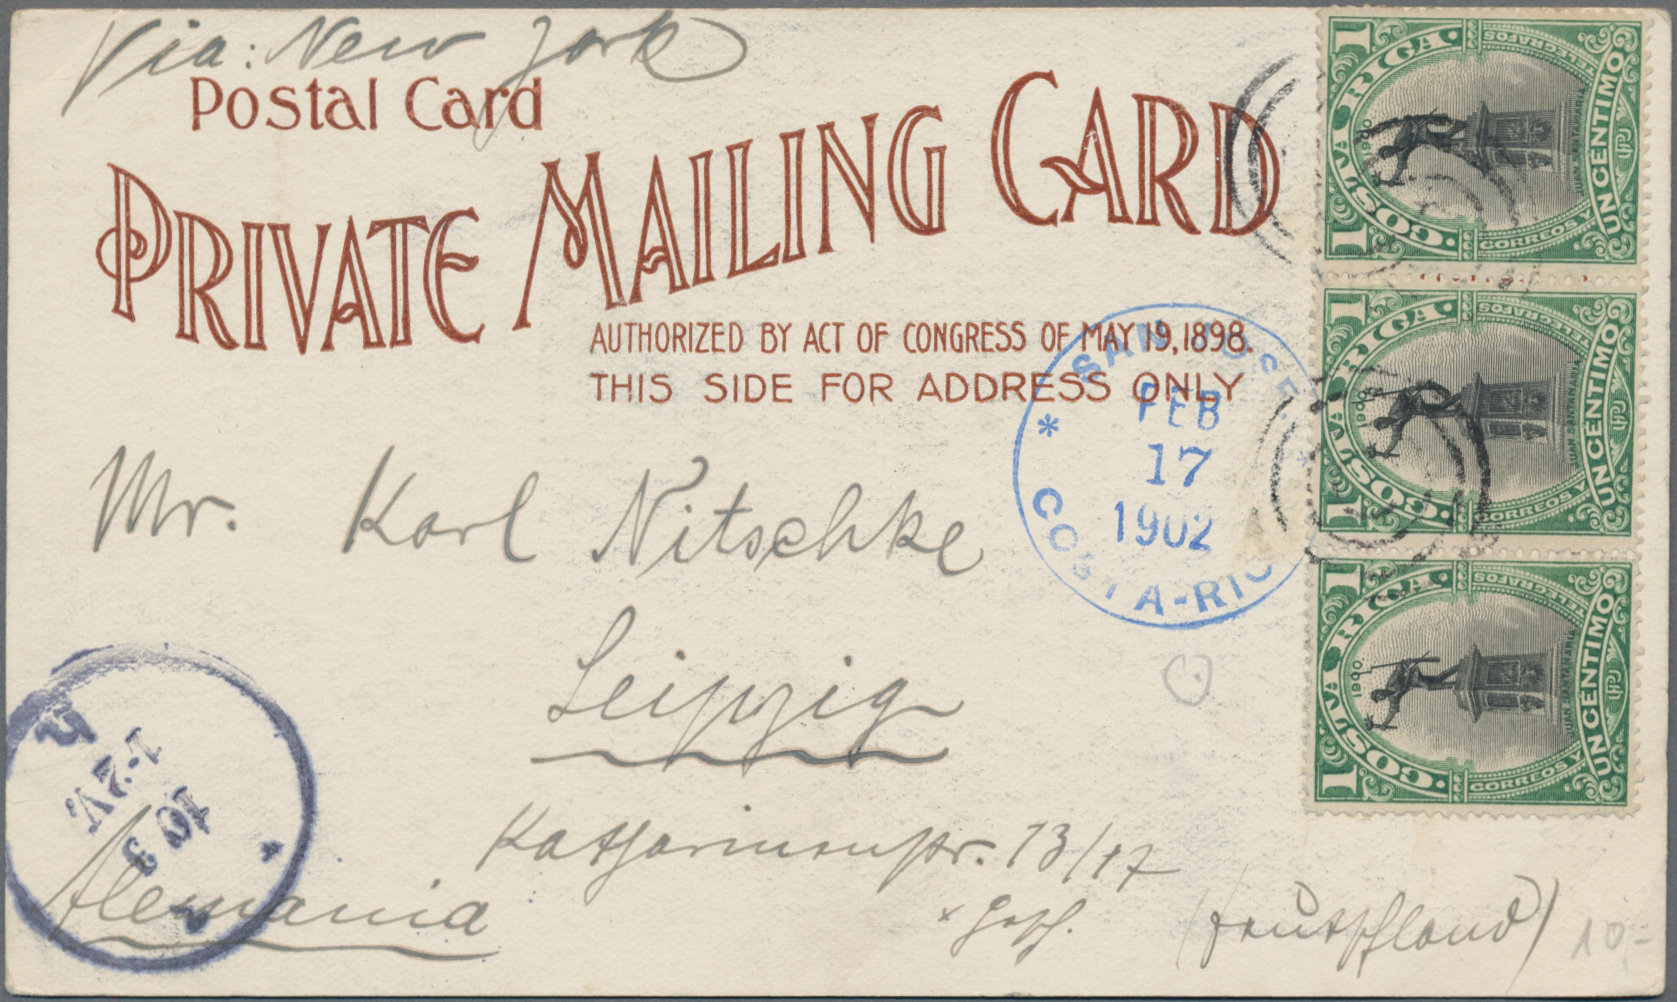 Via: New York
Postal Card
PRIVATE MAILING CARD
AUTHORIZED BY ACT OF CONGRESS OF MAY 19, 1898.
THIS SIDE FOR ADDRESS ONLY
SAN JOSE
FEB
17
1902
COSTA-RIC
Mr. Karl Nitschke
Leipzig
Katharinenstr. 13/17
Alemania
(Deutschland)
10-
1-2 V.
10 3
COSTA RICA.
CORREOS Y TELEGRAFOS
1900
JUAN SANTAMARIA
UPU
UN CENTIMO
1
1
COSTA RICA.
CORREOS Y TELEGRAFOS
1900
JUAN SANTAMARIA
UPU
UN CENTIMO
1
1
COSTA RICA.
CORREOS Y TELEGRAFOS
1900
JUAN SANTAMARIA
UPU
UN CENTIMO
1
1